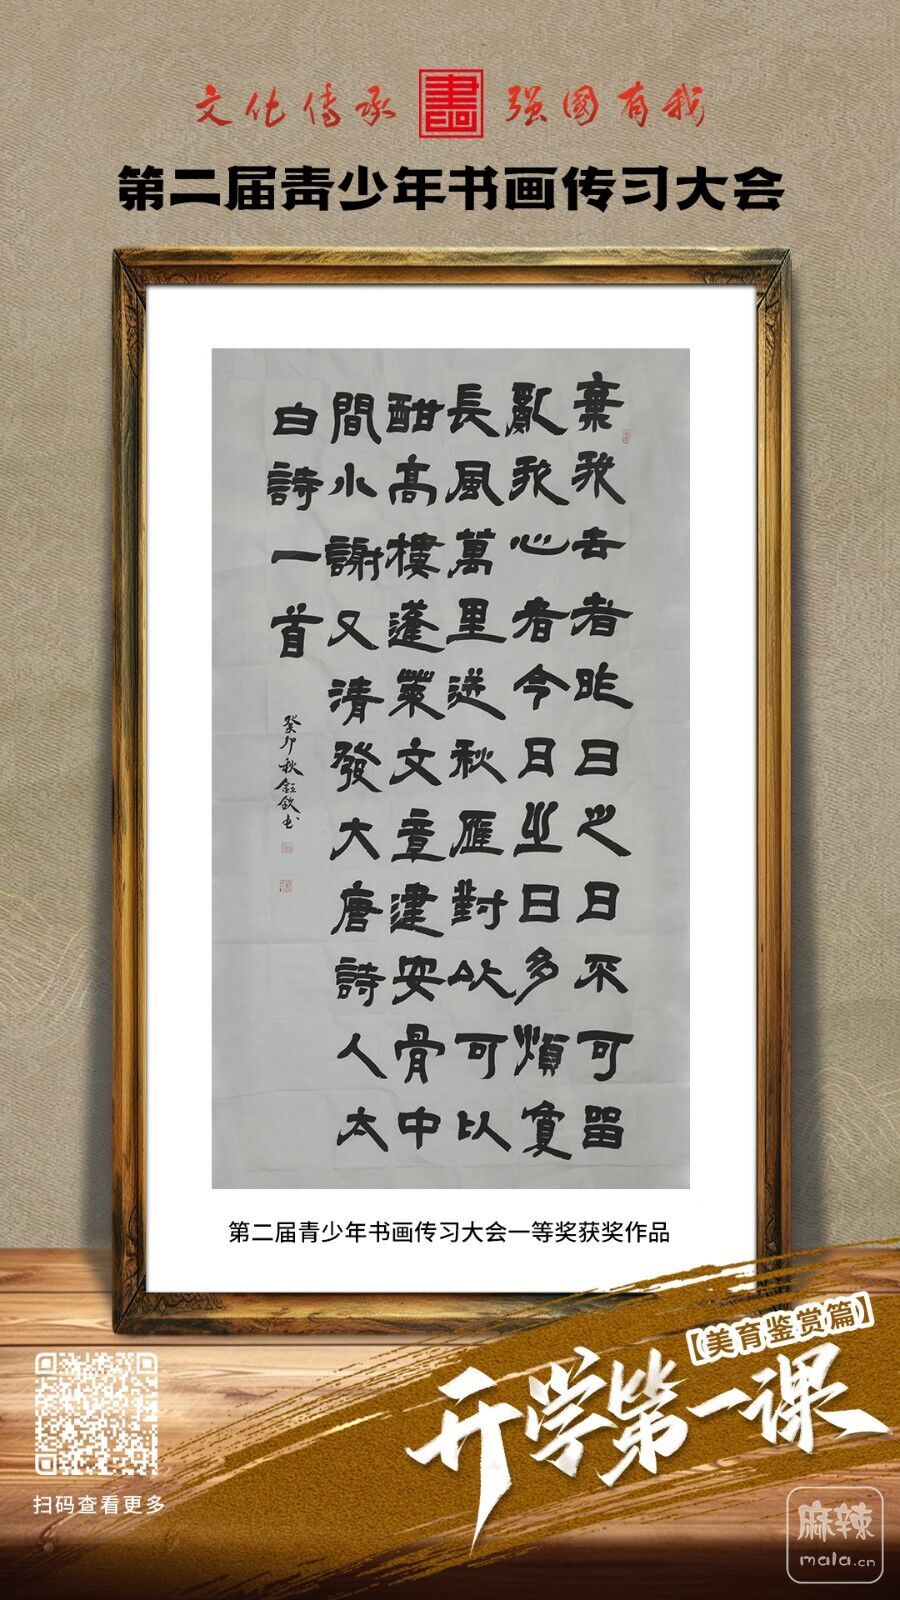 文化传承 書 强國有我
第二届青少年书画传习大会
棄我去者昨日之日不可留
亂我心者今日之日多煩憂
長風萬里送秋雁對此可以
酣高樓蓬萊文章建安骨中
間小謝又清發大唐詩人太
白詩一首
癸卯秋鈺欽书
第二届青少年书画传习大会一等奖获奖作品
【美育鉴赏篇】
开学第一课
扫码查看更多
麻辣
mala.cn